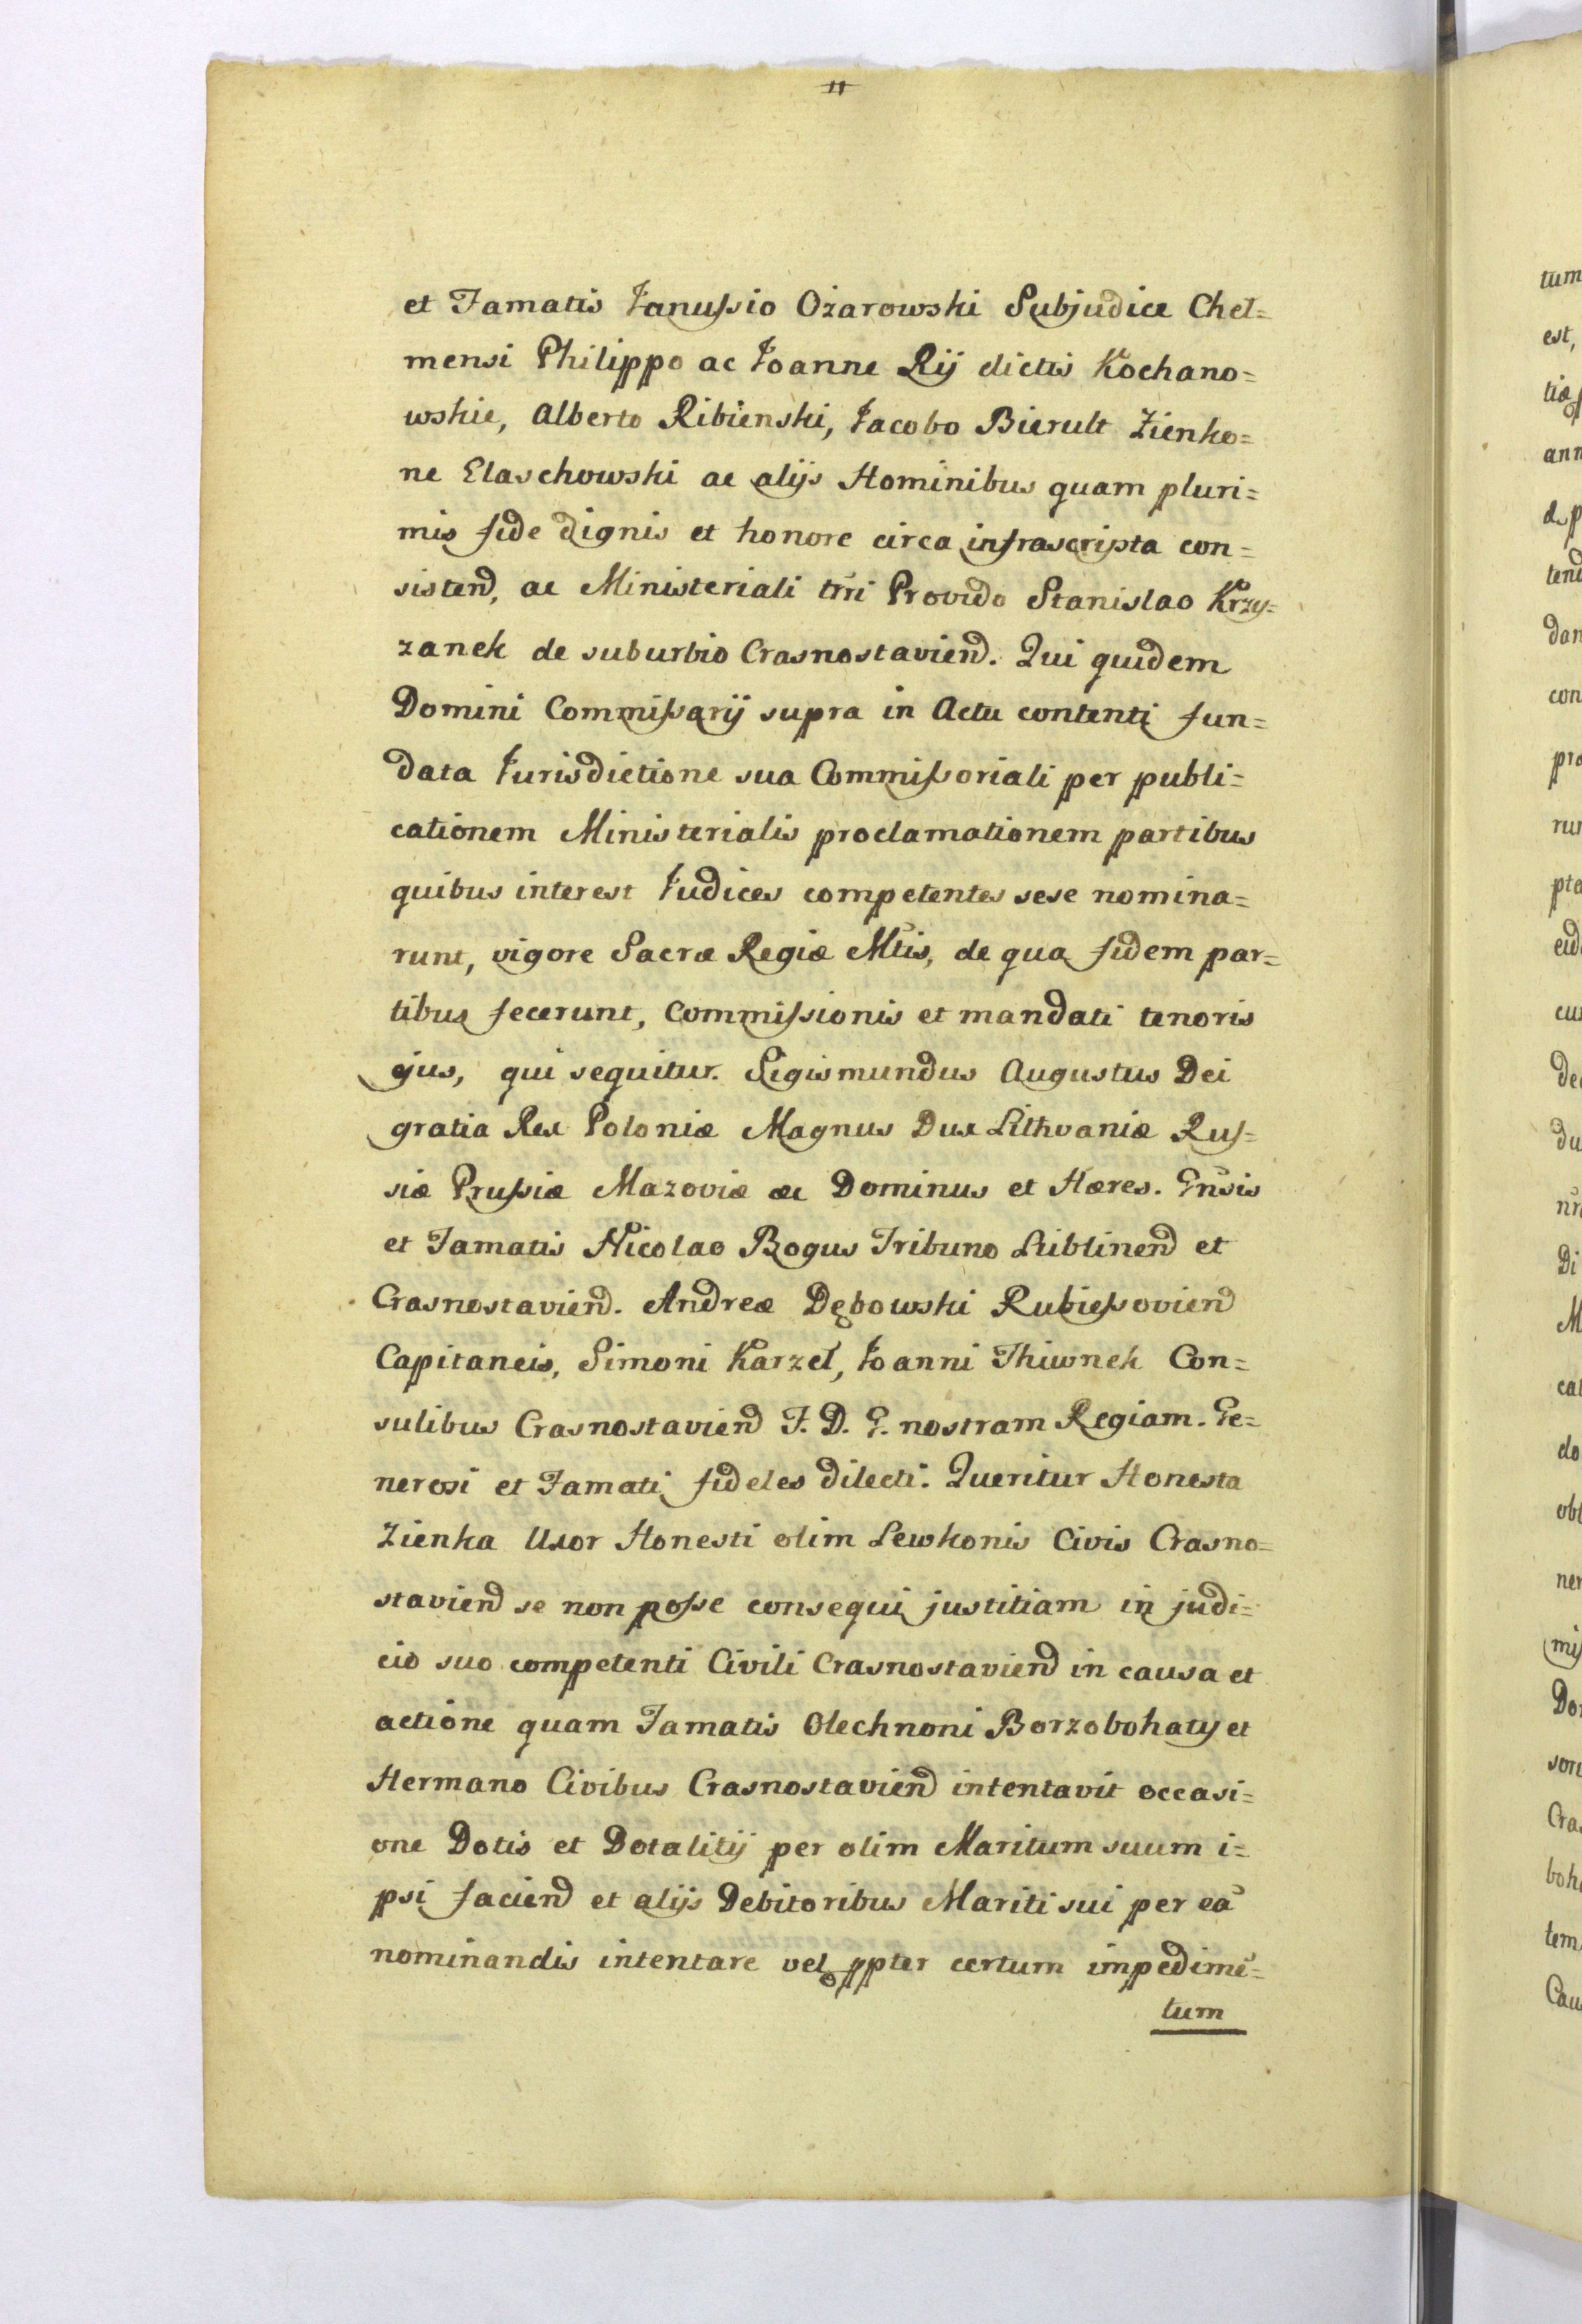 et Famatis Janussio Ożarowski Subjudice Chel=
mensi Philippo ac Joanne Rij dictis Kochano=
wskie, Alberto Ribienski, Jacobo Bierult Zienko=
ne Elaschowski ac alijs Hominibus quam pluri=
mis fide dignis et honore circa infrascripta con=
sistend, ac Ministeriali tñi Provido Stanislao Krzy=
zanek de suburbio Crasnostaviend. Qui quidem
Domini Commissarij supra in Actu contenti fun=
data Jurisdictione sua Commissoriali per publi=
cationem Ministerialis proclamationem partibus
quibus interest Judices competentes sese nomina=
runt, vigore Sacræ Regiæ Mtis, de qua fidem par=
tibus fecerunt, Commissionis et mandati tenoris
ejus, qui sequitur. Sigismundus Augustus Dei
gratia Rex Poloniæ Magnus Dux Lithvaniæ Rus=
siæ Prussiæ Mazoviæ &c Dominus et Hæres. Gnsis
et Famatis Nicolao Bogus Tribuno Lublinend et
Crasnostaviend. Andreæ Dębowski Rubiessoviend
Capitaneis, Simoni Karzeł, Joanni Thiwnek Con=
sulibus Crasnostaviend F. D. G. nostram Regiam. Ge=
nerosi et Famati fideles dilecti. Queritur Honesta
Zienka Uxor Honesti olim Lewkonis Civis Crasno=
staviend se non posse consequi justitiam in judi=
cio suo competenti Civili Crasnostaviend in causa et
actione quam Famatis Olechnoni Borzobohaty et
Hermano Civibus Crasnostaviend intentavit occasi=
one Dotis et Dotalitij per olim Maritum suum i=
psi faciend et alijs Debitoribus Mariti sui per eã
nominandis intentare vel ppter certum impedimẽ=
tum